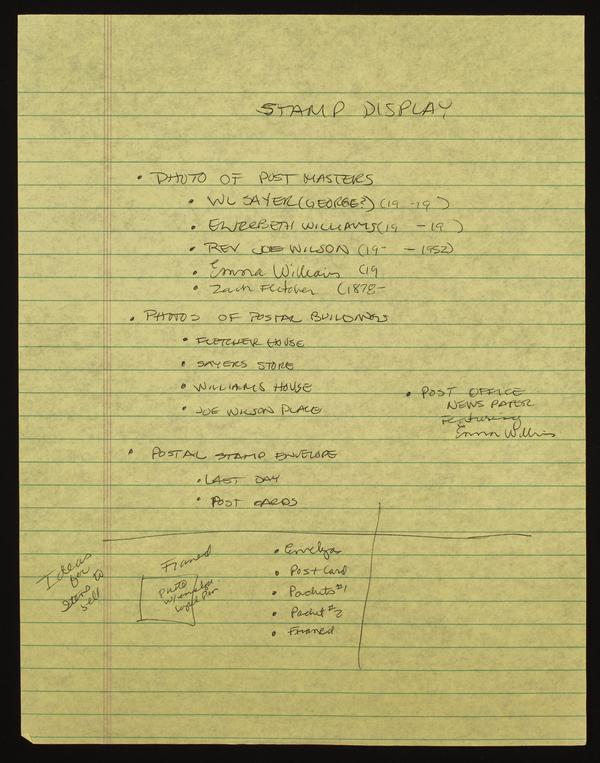 STAMP DISPLAY
• PHOTO OF POST MASTERS
• WL SAYER (GEORGE?) (19 -19 )
• ELIZABETH WILLIAMS (19 - 19 )
• REV JOE WILSON (19- - 1952)
• Emma Williams (19
• Zach Fletcher (1878-
• PHOTOS OF POSTAL BUILDINGS
• FLETCHER HOUSE
• SAYERS STORE
• WILLIAMS HOUSE
• JOE WILSON PLACE
• POST OFFICE
NEWS PAPER
Featuring
Emma Williams
• POSTAL STAMP ENVELOPE
• LAST DAY
• POST CARDS
Ideas
for
Items to
Sell
Framed
Photo
w/envelope
• Envelope
• Post Card
• Packets #1
• Packet #2
• Framed